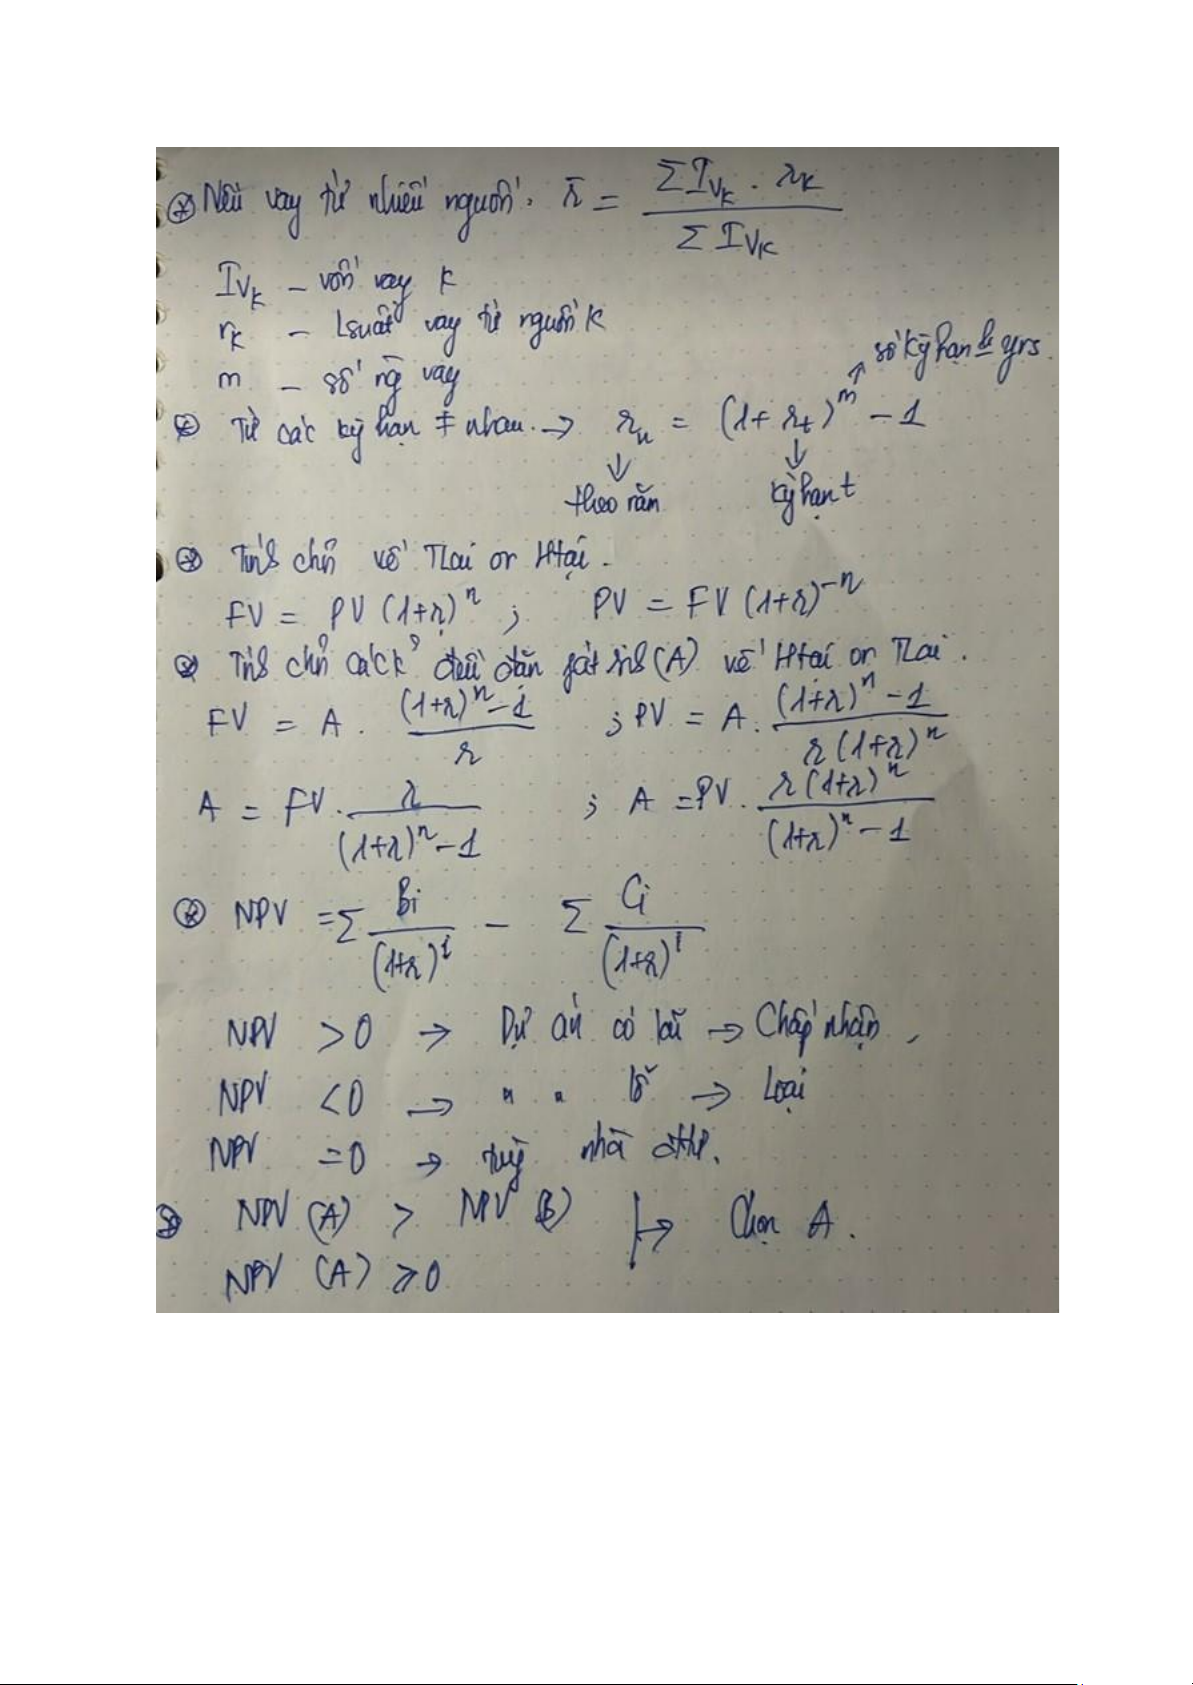 ⊛ Nếu vay từ nhiều nguồn: r̄ = ΣIVₖ . rₖ / ΣIVₖ
IVₖ – vốn vay k
rₖ – lsuất vay từ nguồn k
m – số ng vay
số kỳ hạn
yrs
⊛ Từ các kỳ hạn ≠ nhau → rₙ = (1+rₜ)ᵐ – 1
↓ ↓
theo năm kỳ hạn t
⊛ Tính ch về Tlai or Htại.
FV = PV (1+r)ⁿ ; PV = FV (1+r)⁻ⁿ
⊛ Tính các k đều đặn phát sinh (A) về Htại or Tlai.
FV = A . ((1+r)ⁿ – 1) / r ; PV = A . ((1+r)ⁿ – 1) / (r(1+r)ⁿ)
A = FV . r / ((1+r)ⁿ – 1) ; A = PV . r(1+r)ⁿ / ((1+r)ⁿ – 1)
⊛ NPV = Σ Bi / (1+r)ⁱ – Σ Ci / (1+r)ⁱ
NPV > 0 → Dự án có lãi → Chấp nhận,
NPV < 0 → " " lỗ → Loại
NPV = 0 → tuỳ nhà
NPV (A) > NPV (B) → Chọn A.
NPV (A) ≥ 0